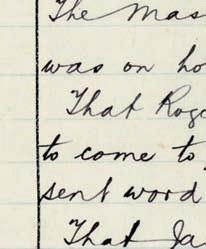 The Mas
was on ho
That Roge
to come to
sent word
That Ja